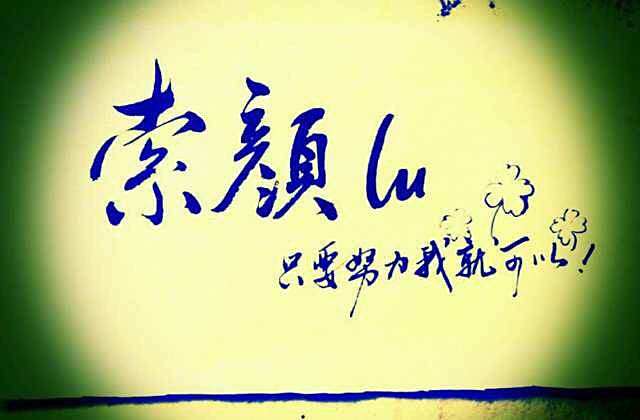 索顔lu
只要努力我就可以!